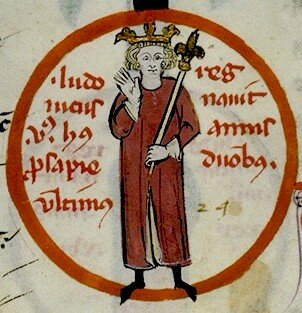 ·ludo
uicus
·vꝰ· hꝰ
ꝓsapie
vltimꝰ
reg
nauit
annis
duobꝰ·
24